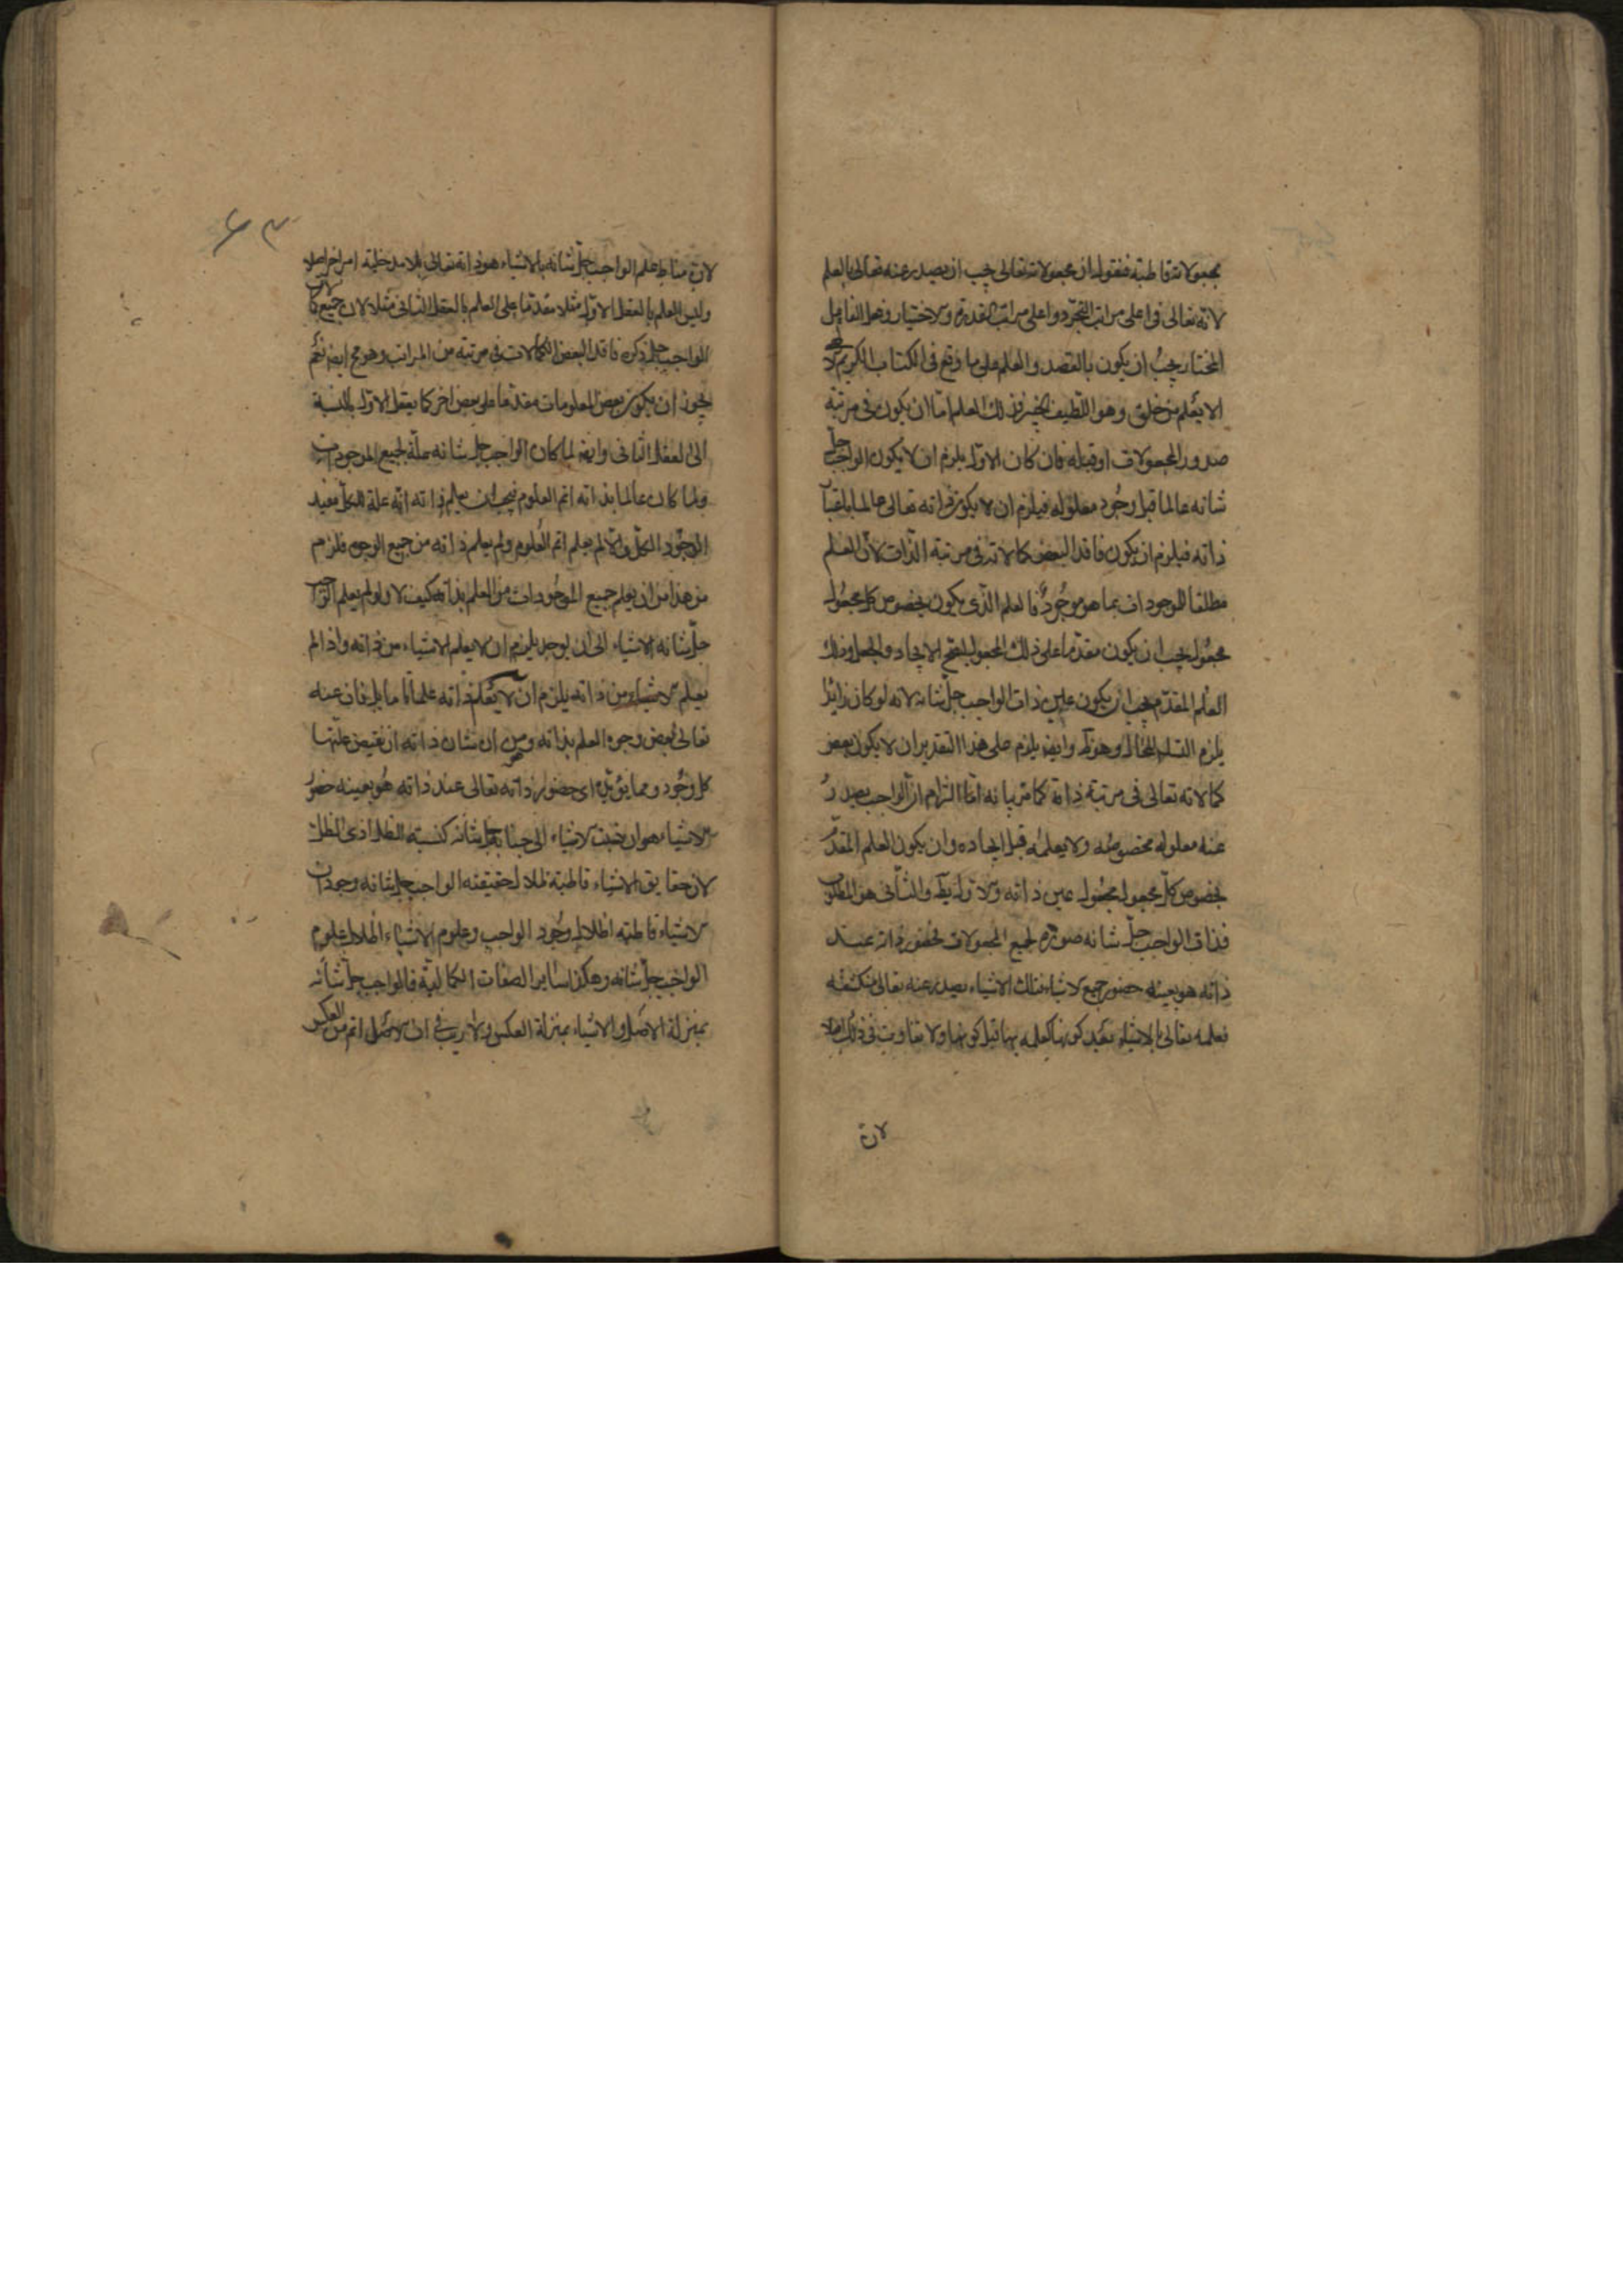 بمجعولاته قاطبة فنقول ان مجعولاته تعالى يجب ان يصدر عنه تعالى بالعلم
لانه تعالى فى اعلى مراتب التجرد واعلى مراتب القدرة والاختيار وفعل الفاعل
المختار يجب ان يكون بالقصد والعلم على ما وقع فى الكتاب الكريم
الا يعلم من خلق وهو اللطيف الخبير فذلك العلم اما ان يكون فى مرتبة
صدور المجعولات او قبله فان كان الاول يلزم ان لا يكون الواجب جل
شانه عالما قبل وجود معلوله فيلزم ان لا يكون ذاته تعالى عالما
ذاته فيلزم ان يكون فاقد البعض كمالاته فى مرتبة الذات لان العلم
مطلقا للموجود اف بما هو موجود فالعلم الذى يكون بخصوص كل مجعول
مجعول يجب ان يكون مقدما على ذلك المجعول الايجاد والجعل وذلك
العلم المقدم يجب ان يكون عين ذات الواجب جل شانه لانه لو كان زائدا
يلزم التسلسل المحال وهو وايضا يلزم على هذا التقدير ان لا يكون بعض
كمالاته تعالى فى مرتبة ذاته كما مر بيانه اما التزام ان الواجب يصدر
عنه معلوله مخصوصه ولا يعلمه قبل ايجاده وان يكون العلم المقدم
بخصوص كل مجعول مجعول عين ذاته والاول بط والثانى هو المطلوب
فذات الواجب جل شانه صورة لجميع المجعولات فحضور ذاته عند
ذاته هو بعينه حضور جميع الاشياء فتلك الاشياء يصدر عنه تعالى منكشفة
فعلمه تعالى بالاشياء بعد كونها كعلمه بها قبل كونها ولا تفاوت فى ذلك اصلا
لان
٦٣
لان مناط علم الواجب جل شانه بالاشياء هو ذاته تعالى بلا مدخلية امر اخر اصلا
وليس العلم بالعقل الاول مثلا مقدما على العلم بالعقل الثانى مثلا لان جميع
الواجب جل ذكره فاقد البعض الكمالات فى مرتبة من المراتب وهو مح ايضا نعم
يجوز ان يكون بعض المعلومات مقدما على بعض اخر كالعقل الاول بالنسبة
الى العقل الثانى وايضا لما كان الواجب جل شانه علة لجميع الموجودات
ولما كان عالما بذاته اتم العلوم فيجب ان يعلم ذاته انه علة للكل مفيد
الوجود الكل والا لم يعلم اتم العلوم ولم يعلم ذاته من جميع الوجوه فلزم
من هذا من ان يعلم جميع الموجودات من العلم بذاته كيف لا ولو لم يعلم الواجب
جل شانه الاشياء الى ان يوجد يلزم ان لا يعلم الاشياء من ذاته واذا لم
يعلم الاشياء من ذاته يلزم ان لا يعلم ذاته علما تاما بل فات عنه
تعالى بعض وجوه العلم بذاته وهو ان شان ذاته ان يفيض عنها
كل وجود ومما يؤيد اى حضور ذاته تعالى عند ذاته هو بعينه حضور
الاشياء هو ان نسبت الاشياء الى جنابه جل شانه كنسبة الظل الى ذى الظل
لان حقايق الاشياء قاطبة ظلال لحقيقته الواجب جل شانه وجودات
الاشياء قاطبة اظلال وجود الواجب وعلوم الاشياء اظلال علوم
الواجب جل شانه وهكذا ساير الصفات الكمالية فالواجب جل شانه
بمنزلة الاصل والاشياء بمنزلة العكس ولا ريب فى ان الاصل اتم من العكس